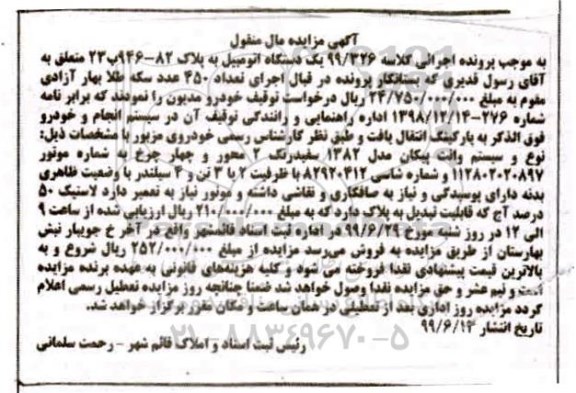 آگهی مزایده مال منقول
به موجب پرونده اجرائی کلاسه ۹۹/۳۲۶ یک دستگاه اتومبیل به پلاک ۸۲–۹۴۶ب۲۳ متعلق به
آقای رسول قدیری که بستانکار پرونده در قبال اجرای تعداد ۴۵۰ عدد سکه طلا بهار آزادی
مقوم به مبلغ ۲۴/۷۵۰/۰۰۰/۰۰۰ ریال درخواست توقیف خودرو مدیون را نمودند که برابر نامه
شماره ۲۷۶–۱۳۹۸/۱۲/۱۴ اداره راهنمایی و رانندگی توقیف آن در سیستم انجام و خودرو
فوق الذکر به پارکینگ انتقال یافت و طبق نظر کارشناس رسمی خودروی مزبور با مشخصات ذیل:
نوع و سیستم وانت پیکان مدل ۱۳۸۲ سفیدرنگ ۲ محور و چهار چرخ به شماره موتور
۱۱۲۸۰۲۰۲۰۸۹۷ و شماره شاسی ۸۲۹۲۰۴۱۲ با ظرفیت ۲ یا ۳ تن و ۴ سیلندر با وضعیت ظاهری
بدنه دارای پوسیدگی و نیاز به صافکاری و نقاشی داشته و موتور نیاز به تعمیر دارد لاستیک ۵۰
درصد آج که قابلیت تبدیل به پلاک دارد که به مبلغ ۲۱۰/۰۰۰/۰۰۰ ریال ارزیابی شده از ساعت ۹
الی ۱۲ در روز شنبه مورخ ۹۹/۶/۲۹ در اداره ثبت اسناد قائمشهر واقع در آخر خ جویبار نبش
بهارستان از طریق مزایده به فروش می‌رسد مزایده از مبلغ ۲۵۲/۰۰۰/۰۰۰ ریال شروع و به
بالاترین قیمت پیشنهادی نقدا فروخته می شود و کلیه هزینه‌های قانونی به عهده برنده مزایده
است و نیم عشر و حق مزایده نقدا وصول خواهد شد ضمنا چنانچه روز مزایده تعطیل رسمی اعلام
گردد مزایده روز اداری بعد از تعطیلی در همان ساعت و مکان مقرر برگزار خواهد شد.
تاریخ انتشار ۹۹/۶/۱۳
رئیس ثبت اسناد و املاک قائم شهر – رحمت سلمانی
۰۲۱–۸۸۳۴۹۶۷۰–۵